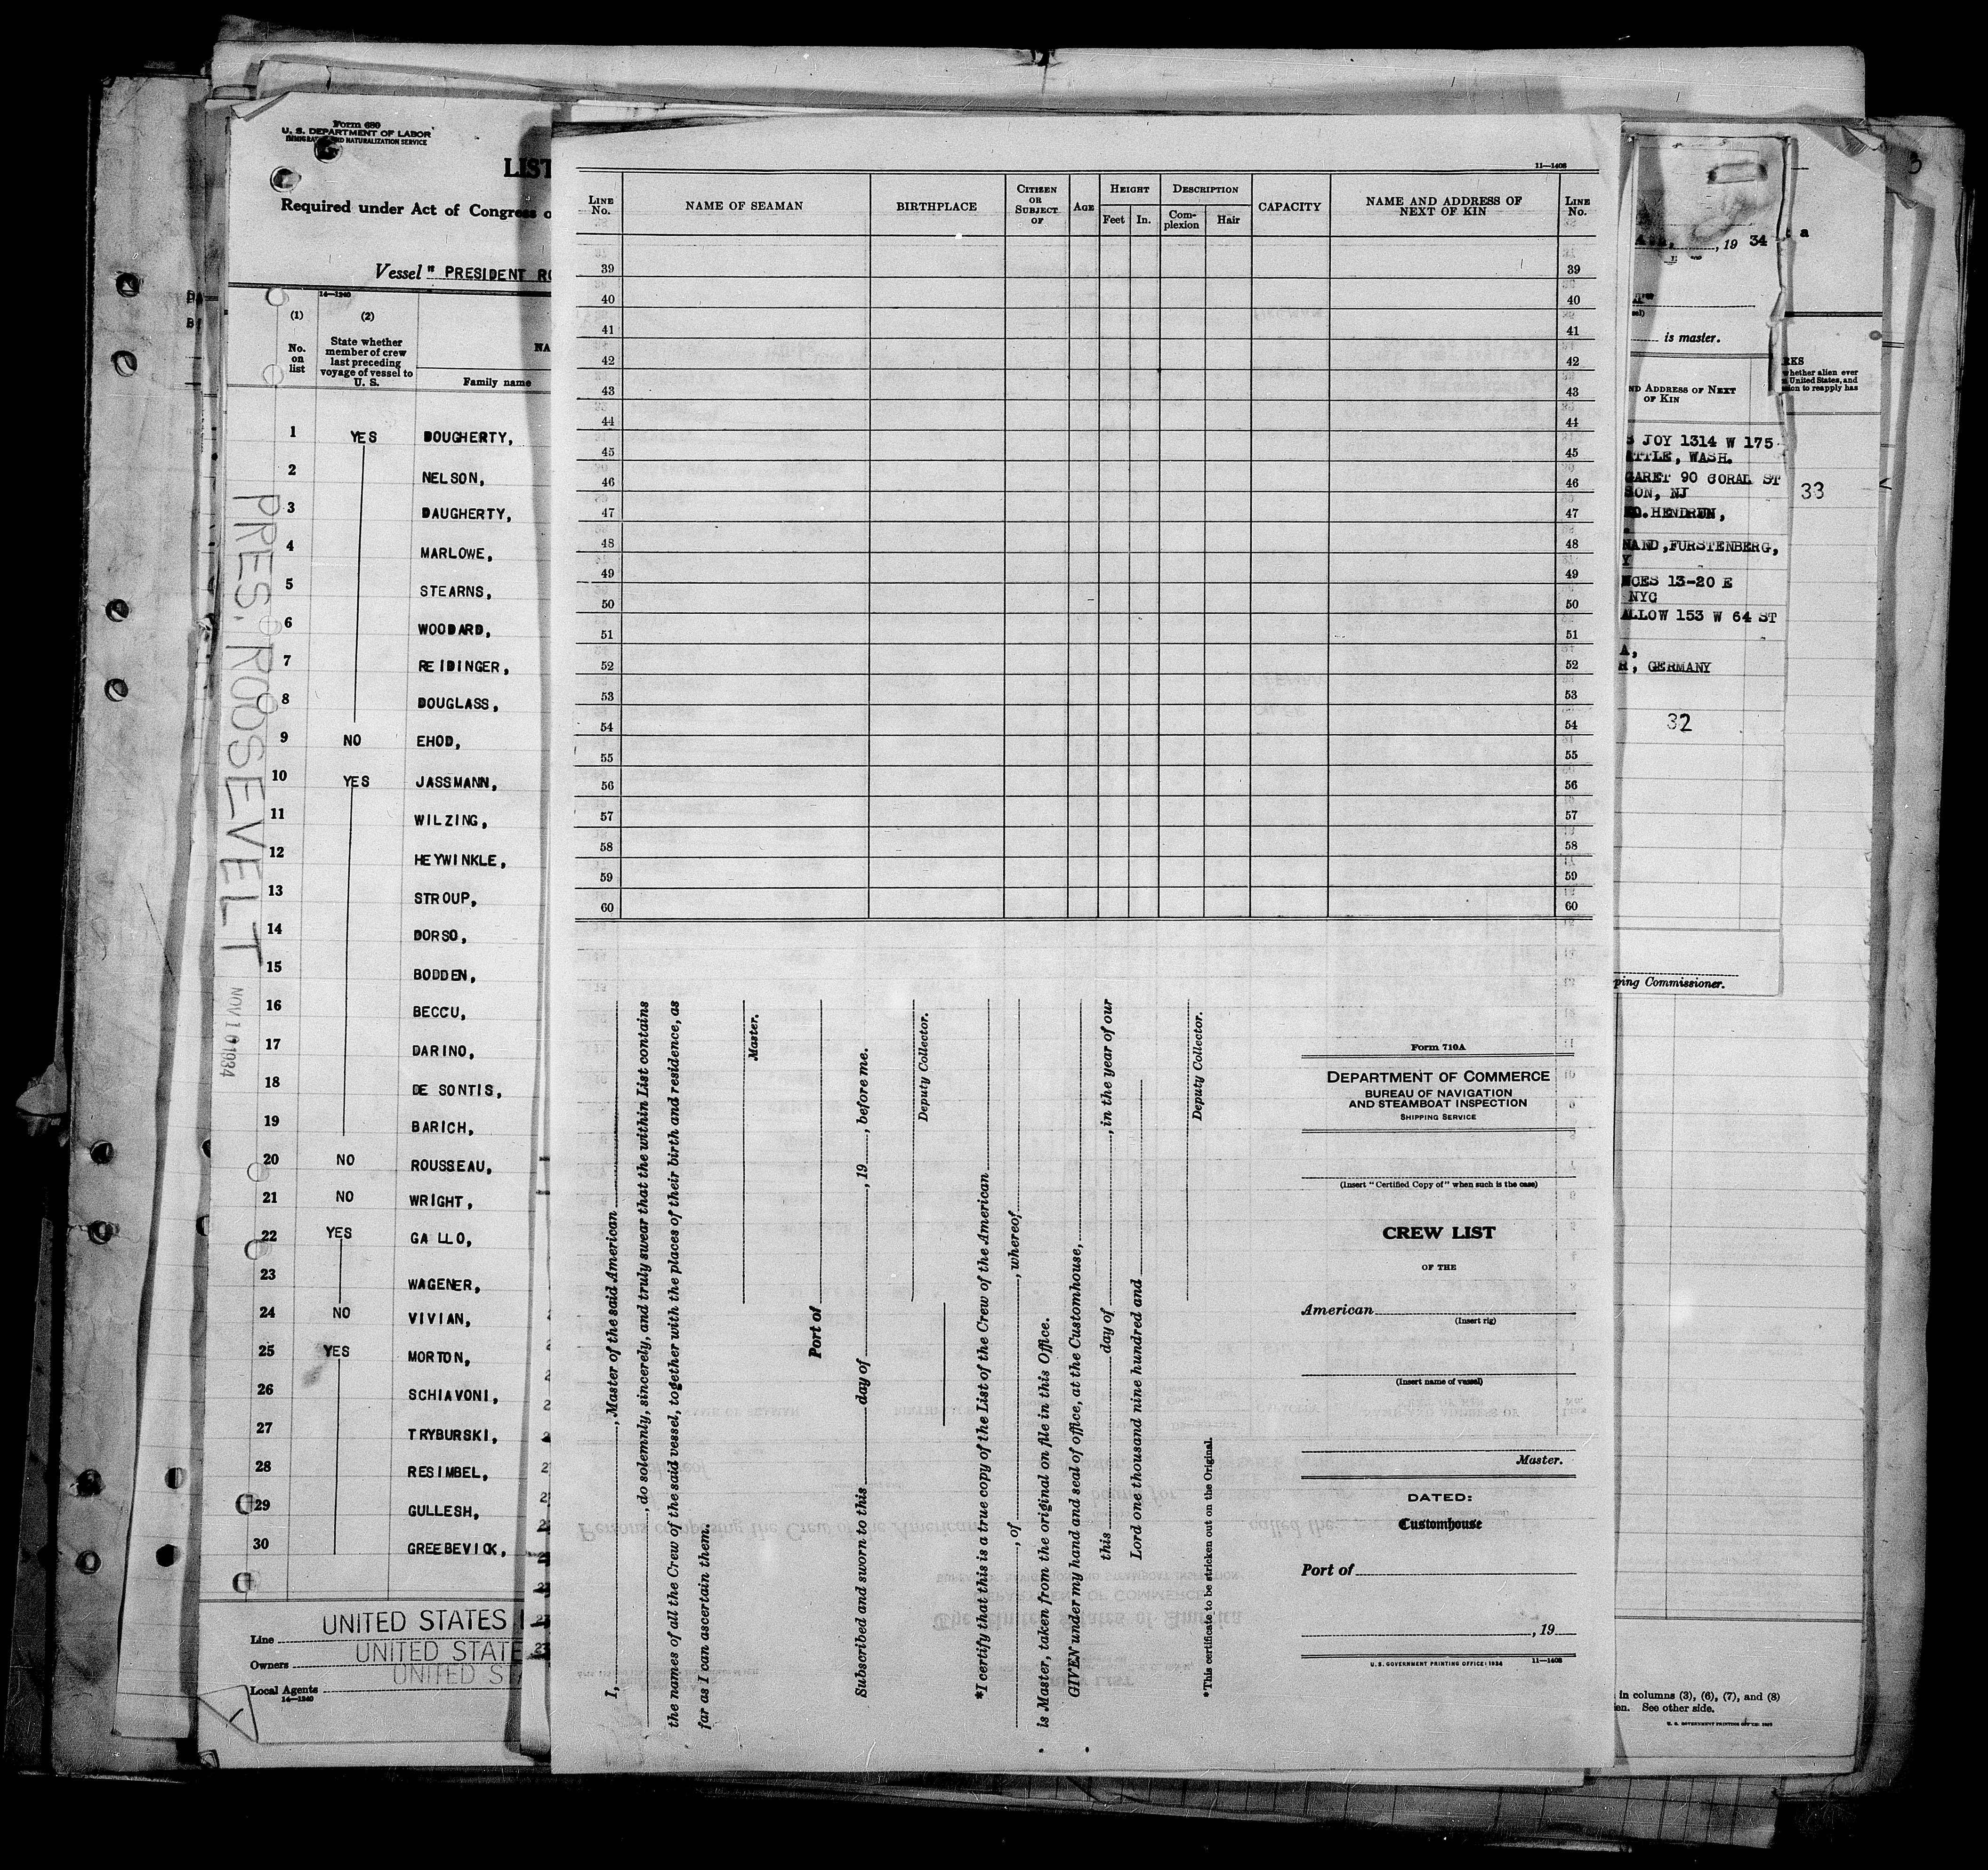 Form 680
U. S. DEPARTMENT OF LABOR
IMMIGRATION AND NATURALIZATION SERVICE
LIST
Required under Act of Congress o
Vessel " PRESIDENT RO
14—1240
(1) (2)
No. on list
State whether member of crew last preceding voyage of vessel to U. S.
NA
Family name
1 YES DOUGHERTY,
2 NELSON,
3 DAUGHERTY,
4 MARLOWE,
5 STEARNS,
6 WOODARD,
7 REIDINGER,
8 DOUGLASS,
9 NO EHOD,
10 YES JASSMANN,
11 WILZING,
12 HEYWINKLE,
13 STROUP,
14 DORSO,
15 BODDEN,
16 BECCU,
17 DARINO,
18 DE SONTIS,
19 BARICH,
20 NO ROUSSEAU,
21 NO WRIGHT,
22 YES GALLO,
23 WAGENER,
24 NO VIVIAN,
25 YES MORTON,
26 SCHIAVONI,
27 TRYBURSKI,
28 RESIMBEL,
29 GULLESH,
30 GREEBEVICK,
PRES. ROOSEVELT
NOV 10 1934
Line UNITED STATES
Owners UNITED STATE
Local Agents UNITED STA
14—1240
11—1408
LINE No.
NAME OF SEAMAN
BIRTHPLACE
CITIZEN OR SUBJECT OF
AGE
HEIGHT
Feet In.
DESCRIPTION
Complexion Hair
CAPACITY
NAME AND ADDRESS OF NEXT OF KIN
LINE No.
39 39
40 40
41 41
42 42
43 43
44 44
45 45
46 46
47 47
48 48
49 49
50 50
51 51
52 52
53 53
54 54
55 55
56 56
57 57
58 58
59 59
60 60
I, , Master of the said American
, do solemnly, sincerely, and truly swear that the within List contains
the names of all the Crew of the said vessel, together with the places of their birth and residence, as
far as I can ascertain them.
Master.
Port of
Subscribed and sworn to this day of , 19 , before me.
Deputy Collector.
*I certify that this is a true copy of the List of the Crew of the American
, of , whereof
is Master, taken from the original on file in this Office.
GIVEN under my hand and seal of office, at the Customhouse,
this day of , in the year of our
Lord one thousand nine hundred and
Deputy Collector.
*This certificate to be stricken out on the Original.
Form 710A
DEPARTMENT OF COMMERCE
BUREAU OF NAVIGATION
AND STEAMBOAT INSPECTION
SHIPPING SERVICE
(Insert "Certified Copy of" when such is the case)
CREW LIST
OF THE
American
(Insert rig)
(Insert name of vessel)
Master.
DATED:
Customhouse
Port of
, 19
U. S. GOVERNMENT PRINTING OFFICE: 1934 11—1408
, 19 34
a
is master.
ND ADDRESS OF NEXT
OF KIN
RKS
whether alien ever
United States, and
ion to reapply has
S JOY 1314 W 175
ATTLE, WASH.
GARET 90 CORAL ST
SON, NJ
ED. HENDRUN,
NAND, FURSTENBERG,
Y
NCES 13-20 E
NYC
ALLOW 153 W 64 ST
A,
R, GERMANY
33
32
3
ping Commissioner.
in columns (3), (6), (7), and (8)
en. See other side.